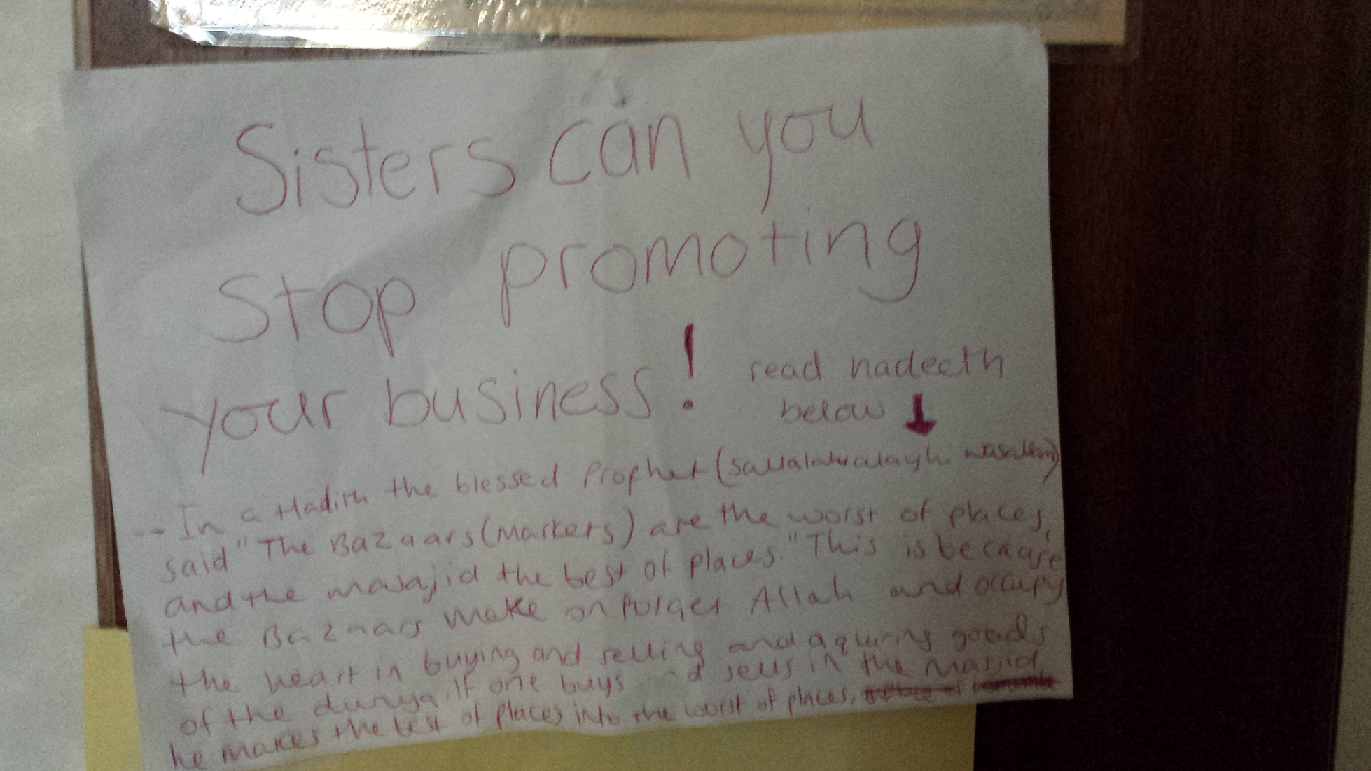 Sisters can you
Stop promoting
your business!
read hadeeth
below
-- In a Hadith the blessed Prophet (sallalahualayhi wasallam)
said "The Bazaars (markets) are the worst of places,
and the masajid the best of places." This is because
the Bazaars make on forget Allah and occupy
the heart in buying and selling and aquiring goods
of the dunya. If one buys and sells in the masjid,
he makes the best of places into the worst of places.